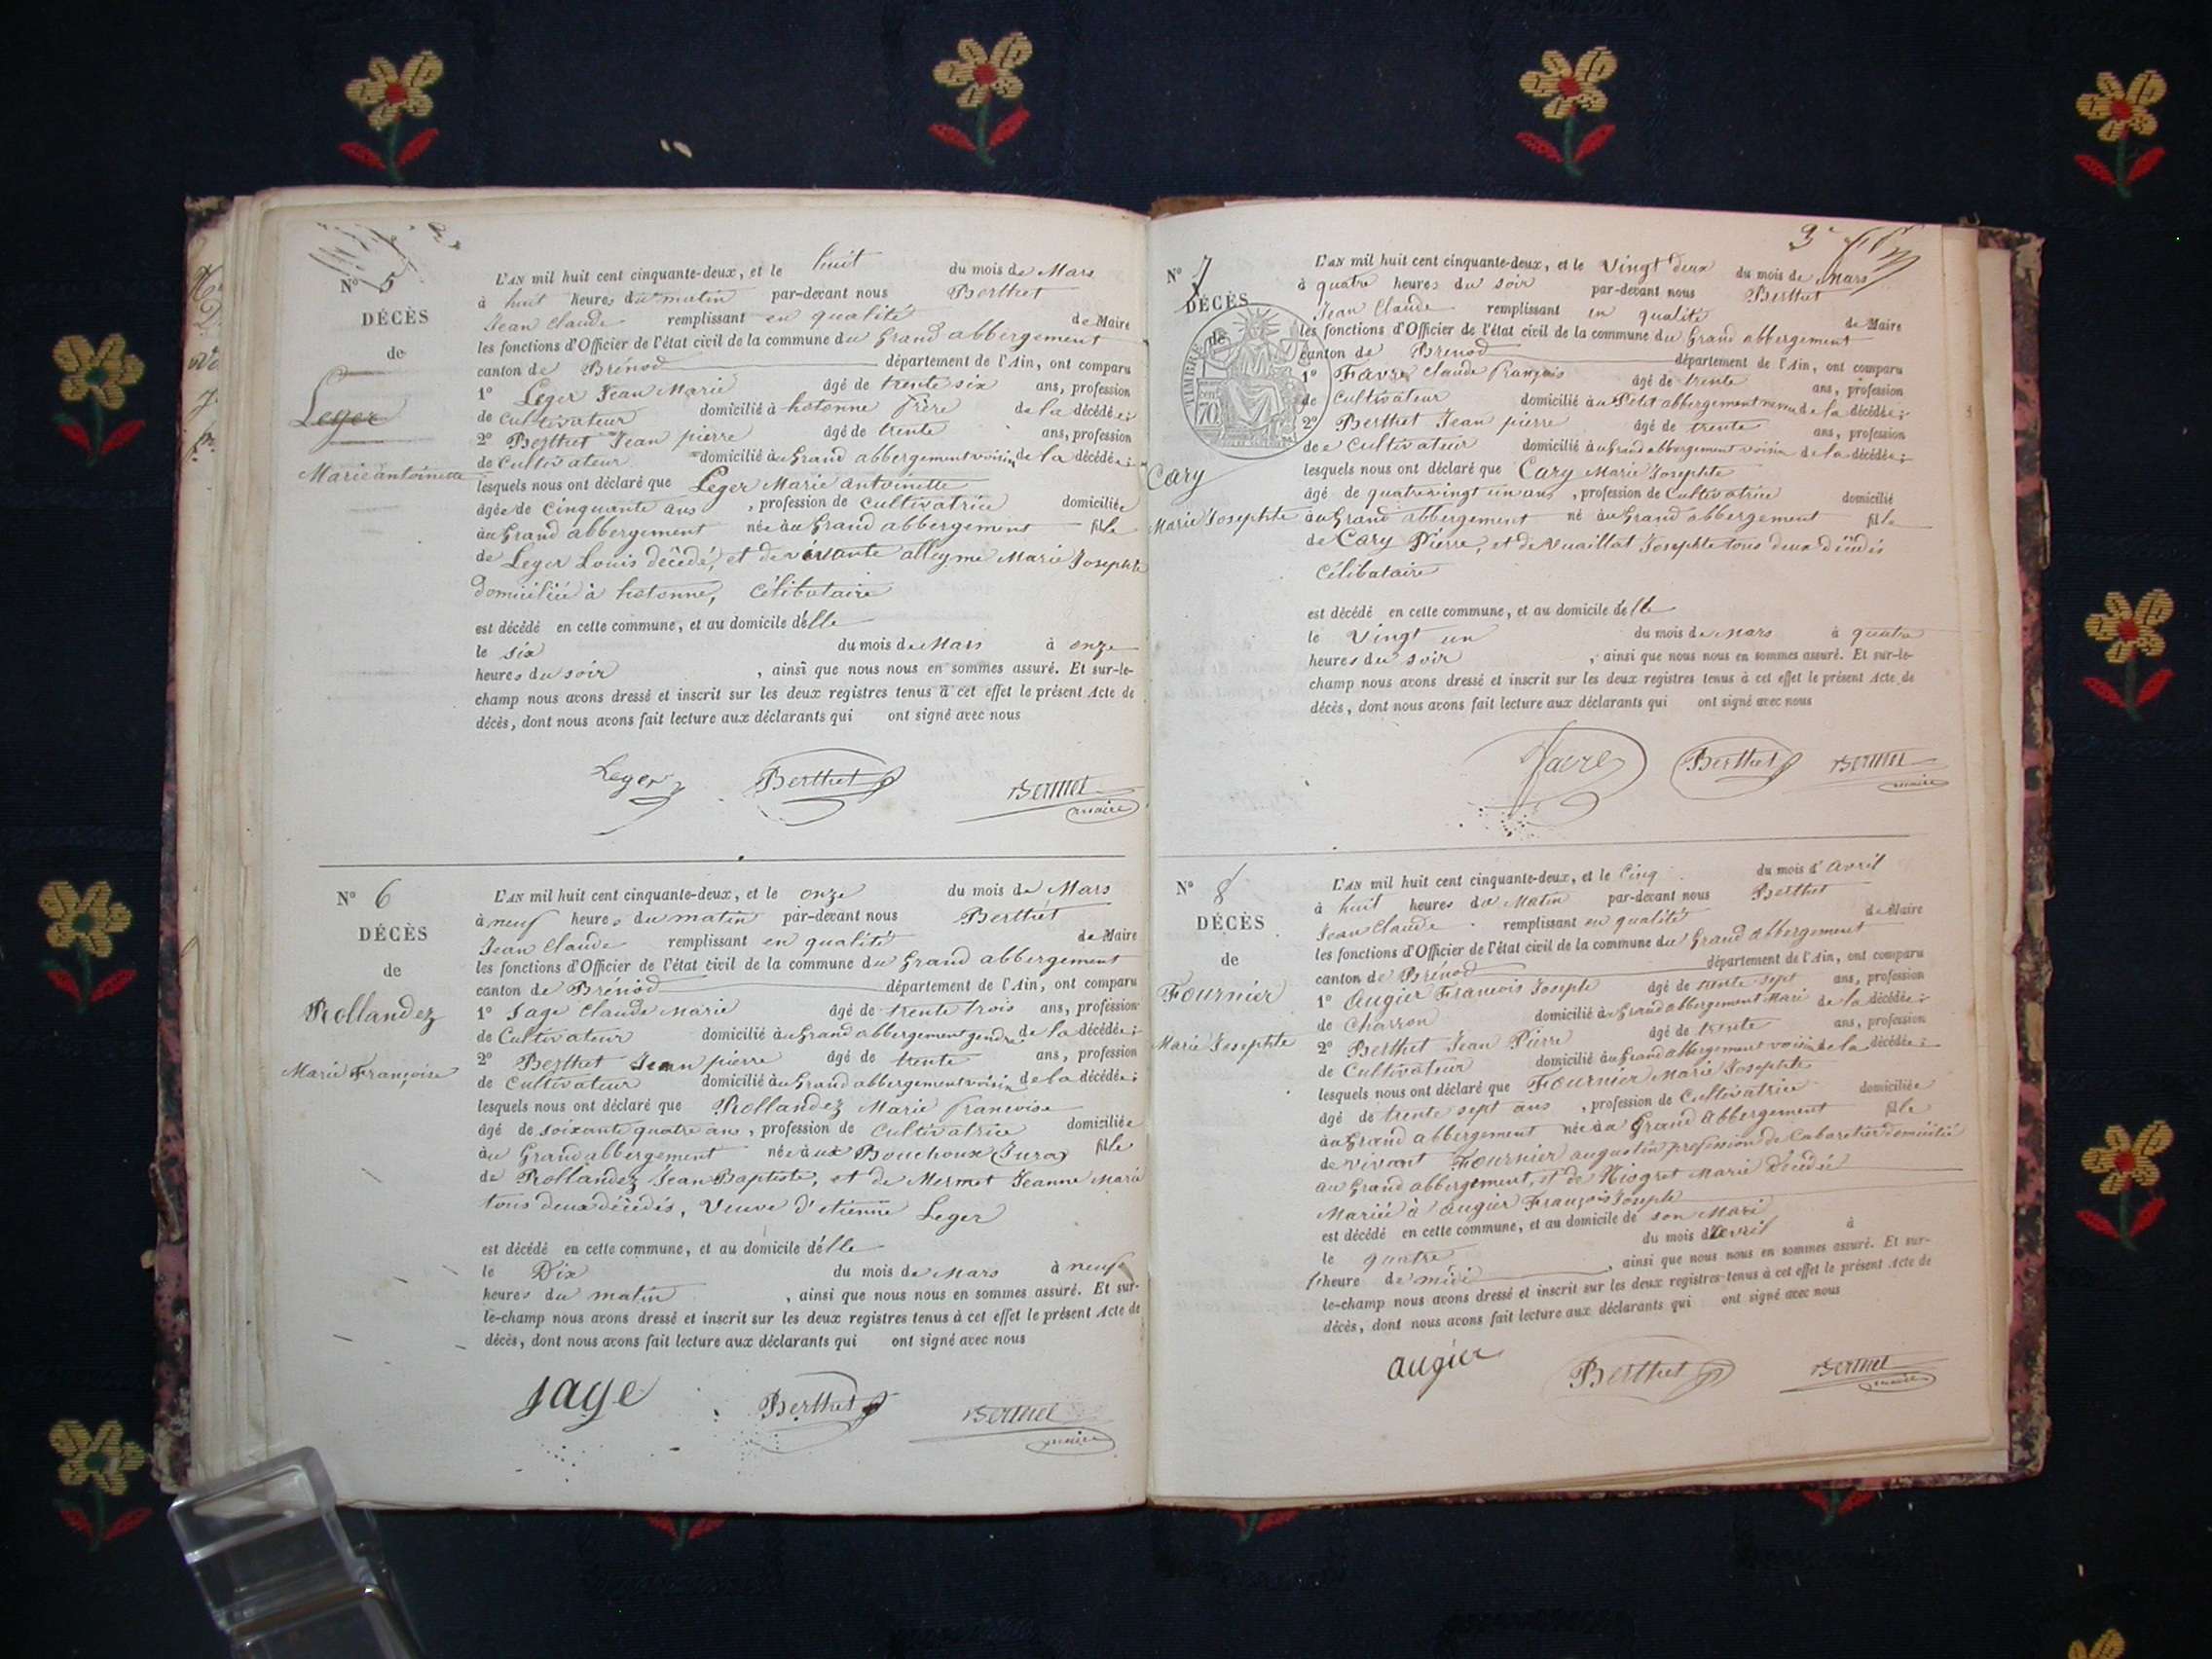 N° 5
DÉCÈS
de
Leger
Marie antoinette
L'AN mil huit cent cinquante-deux, et le huit du mois de Mars
à huit heures du matin par-devant nous Berthet
Jean Claude remplissant en qualité de Maire
les fonctions d'Officier de l'état civil de la commune du Grand abbergement
canton de Brénod département de l'Ain, ont comparu
1° Leger Jean Marie âgé de trente six ans, profession
de Cultivateur domicilié à hotonne frère de la décédée;
2° Berthet Jean pierre âgé de trente ans, profession
de Cultivateur domicilié au Grand abbergement voisin de la décédée;
lesquels nous ont déclaré que Leger Marie antoinette
âgée de Cinquante ans, profession de Cultivatrice domiciliée
au Grand abbergement née au Grand abbergement fille
de Leger Louis décédé, et de vivante alleyme Marie Josephte
domiciliée à hotonne, Célibataire
est décédé en cette commune, et au domicile d'elle
le six du mois de Mars à onze
heures du soir, ainsi que nous nous en sommes assuré. Et sur-le-
champ nous avons dressé et inscrit sur les deux registres tenus à cet effet le présent Acte de
décès, dont nous avons fait lecture aux déclarants qui ont signé avec nous
Leger Berthet Berthet
maire
N° 6
DÉCÈS
de
Rollandez
Marie Françoise
L'AN mil huit cent cinquante-deux, et le onze du mois de Mars
à neuf heures du matin par-devant nous Berthet
Jean Claude remplissant en qualité de Maire
les fonctions d'Officier de l'état civil de la commune du Grand abbergement
canton de Brénod département de l'Ain, ont comparu
1° Sage Claude Marie âgé de trente trois ans, profession
de Cultivateur domicilié au Grand abbergement gendre de la décédée;
2° Berthet Jean pierre âgé de trente ans, profession
de Cultivateur domicilié au Grand abbergement voisin de la décédée;
lesquels nous ont déclaré que Rollandez Marie francoise
âgé de soixante quatre ans, profession de Cultivatrice domiciliée
au Grand abbergement née aux Bouchoux (Jura) fille
de Rollandez Jean Baptiste, et de Mermet Jeanne Marie
tous deux décédés, Veuve d'etienne Leger
est décédé en cette commune, et au domicile d'elle
le Dix du mois de Mars à neuf
heures du matin, ainsi que nous nous en sommes assuré. Et sur-
le-champ nous avons dressé et inscrit sur les deux registres tenus à cet effet le présent Acte de
décès, dont nous avons fait lecture aux déclarants qui ont signé avec nous
Sage Berthet Berthet
maire
3e
N° 7
DÉCÈS
de
TIMBRE
70 cent
Cary
Marie Josephte
L'AN mil huit cent cinquante-deux, et le Vingt deux du mois de Mars
à quatre heures du soir par-devant nous Berthet
Jean Claude remplissant en qualité de Maire
les fonctions d'Officier de l'état civil de la commune du Grand abbergement
canton de Brenod département de l'Ain, ont comparu
1° Favre Claude françois âgé de trente ans, profession
de Cultivateur domicilié au Petit abbergement neveu de la décédée;
2° Berthet Jean pierre âgé de trente ans, profession
de Cultivateur domicilié au Grand abbergement voisin de la décédée;
lesquels nous ont déclaré que Cary Marie Josephte
âgé de quatrevingt un ans, profession de Cultivatrice domicilié
au Grand abbergement né au Grand abbergement fille
de Cary Pierre, et de Vuaillat Josephte tous deux décédés
Célibataire
est décédé en cette commune, et au domicile d'elle
le Vingt un du mois de Mars à quatre
heures du soir, ainsi que nous nous en sommes assuré. Et sur-le-
champ nous avons dressé et inscrit sur les deux registres tenus à cet effet le présent Acte de
décès, dont nous avons fait lecture aux déclarants qui ont signé avec nous
Favre Berthet Berthet
maire
N° 8
DÉCÈS
de
Fournier
Marie Josephte
L'AN mil huit cent cinquante-deux, et le Cinq du mois d'avril
à huit heures du Matin par-devant nous Berthet
Jean Claude remplissant en qualité de Maire
les fonctions d'Officier de l'état civil de la commune du Grand abbergement
canton de Brénod département de l'Ain, ont comparu
1° Augier Francois Joseph âgé de trente sept ans, profession
de Charron domicilié au Grand abbergement Mari de la décédée;
2° Berthet Jean Pierre âgé de trente ans, profession
de Cultivateur domicilié au Grand abbergement voisin de la décédée;
lesquels nous ont déclaré que Fournier Marie Josephte
âgé de trente sept ans, profession de Cultivatrice domiciliée
au Grand abbergement née au Grand abbergement fille
de vivant Fournier augustin profession de Cabaretier domicilié
au Grand abbergement, et de Niogret Marie décédée
Mariée à Augier François Joseph
est décédé en cette commune, et au domicile de son Mari
le quatre du mois d'avril à
1 heure de midi, ainsi que nous nous en sommes assuré. Et sur-
le-champ nous avons dressé et inscrit sur les deux registres tenus à cet effet le présent Acte de
décès, dont nous avons fait lecture aux déclarants qui ont signé avec nous
augier Berthet Berthet
maire